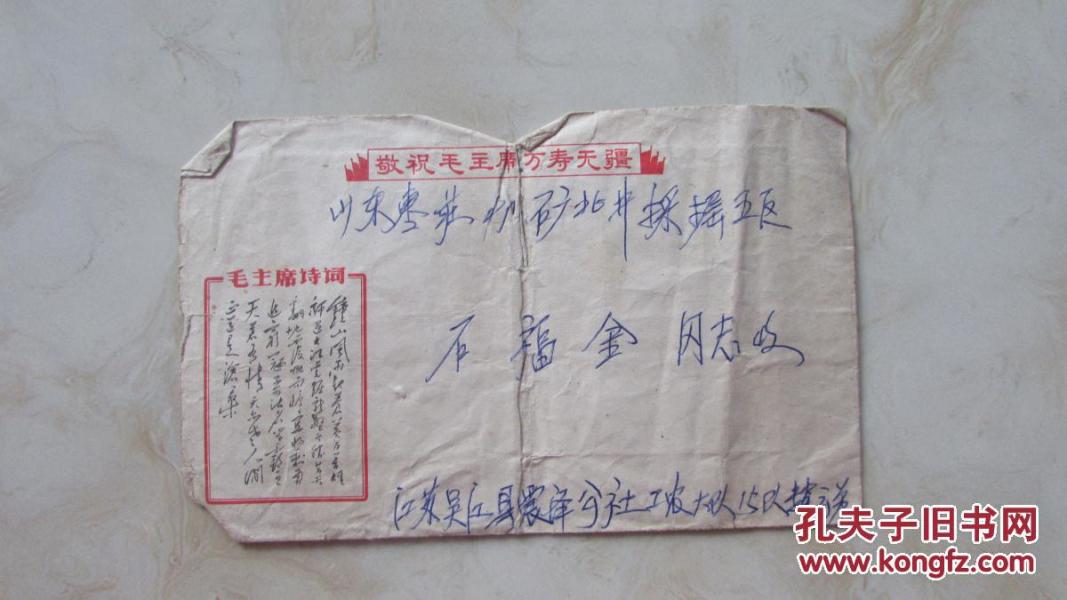 敬祝毛主席万寿无疆
山东枣庄 矿北井採掘五区
毛主席诗词
鐘山風雨起苍黄百万雄
師过大江虎踞龍盤今胜昔天
翻地覆慨而慷宜将剩勇
追穷寇不可沽名学霸王
天若有情天亦老人间
正道是滄桑
石福金 同志收
江苏吴江县震泽公社工农大队15队
孔夫子旧书网
www.kongfz.com